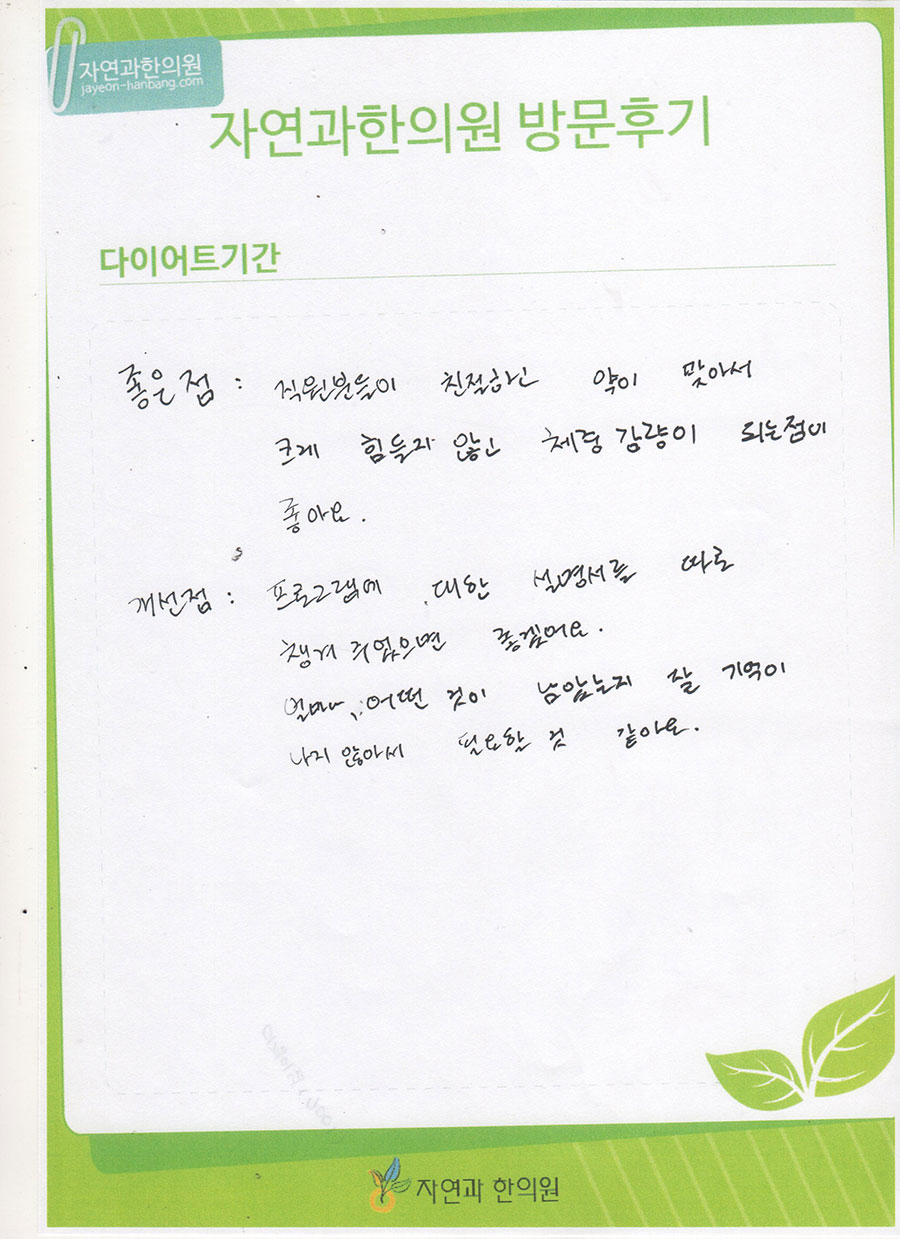 자연과한의원
jayeon-hanbang.com
자연과한의원 방문후기
다이어트기간
좋은점 : 직원분들이 친절하신 약이 맞아서
크게 힘들지 않고 체중 감량이 되는점이
좋아요.
개선점 : 프로그램에 대한 설명서를 따로
챙겨 주었으면 좋겠어요.
얼마나, 어떤 것이 남았는지 잘 기억이
나지 않아서 필요한 것 같아요.
자연과 한의원